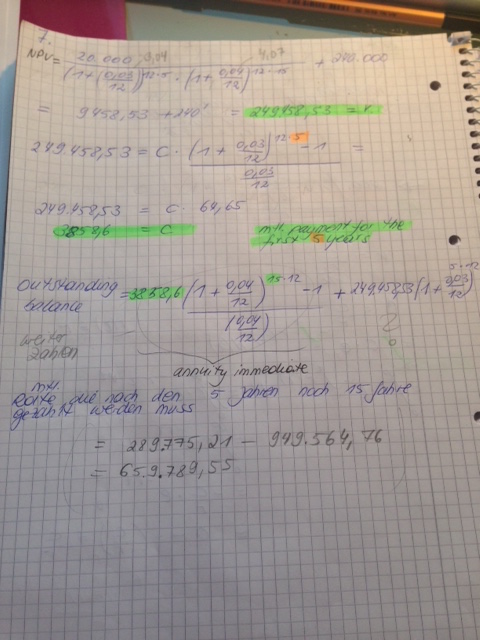 1.
NPV = 20.000 / ((1+(0,03/12))^12·5 · (1+0,04/12)^12·15) + 240.000
= 9458,53 + 240' = 249458,53 = V.
249.458,53 = C · ((1 + 0,03/12)^12·5 - 1) / (0,03/12) =
249.458,53 = C · 64,65
3858,6 = C mtl. payment for the first 5 years
outstanding balance = 3858,6 ((1 + 0,04/12)^15·12 - 1) / (0,04/12) + 249.458,53 (1 + 0,03/12)^5·12
?
weiter zahlen
annuity immediate
mtl.
Rate die nach den 5 Jahren noch 15 Jahre
gezahlt werden muss
= 289.775,21 - 949.564,76
= 659.789,55